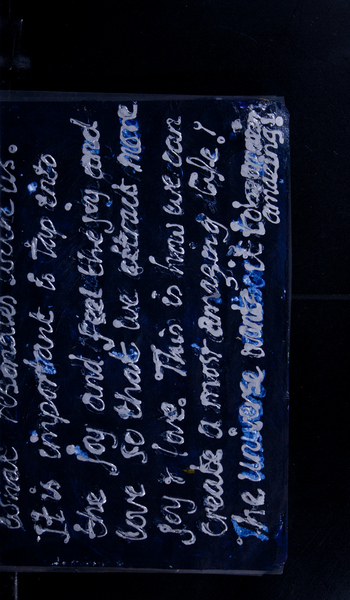 what resonates within us.
It is important to Tap into
the Joy and feel the joy and
love so that we attract more
Joy & love. This is how we can
create a most amazing life!
The universe wants it to be
amazing!